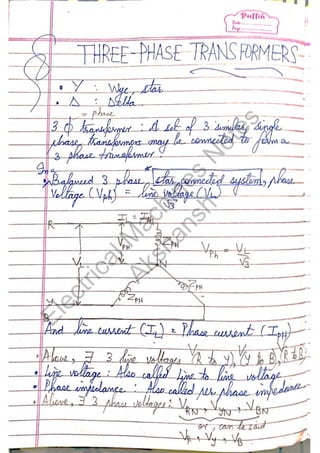 Puffin
Date
Page
THREE-PHASE TRANSFORMERS
• Y : Wye, star
• Δ : Delta
= phase
3 ϕ transformer : A set of 3 similar single
phase transformers may be connected to form a
3 phase transformer
In a
• Balanced 3 phase star connected system, phase
voltage (Vph) = line voltage (VL)
√3
IL = IPH
R
VPH
ZPH
VL
N
Vph = VL
√3
ZPH
ZPH
Y
B
And line current (IL) = Phase current (IPH)
• Above, ∃ 3 line voltages V(R to Y), V(Y to B), V(R to B)
• Line voltage : Also called line to line voltage
• Phase impedance : Also called per phase impedance
• Above, ∃ 3 phase voltages : VRN, VYN, VBN
or, can be said
VR, VY, VB
Electrical Machines Notes